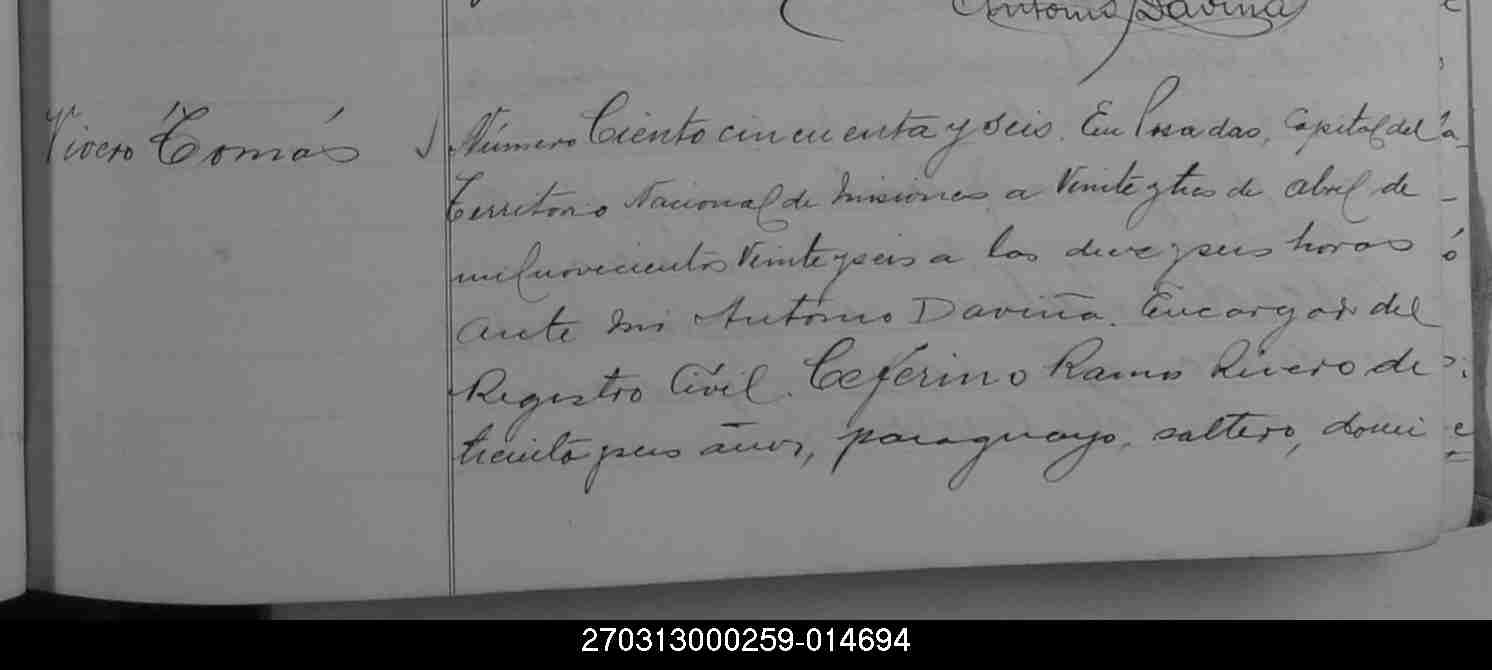 Antonio Daviña
Vivero Tomás
Número Ciento cincuenta y seis. En Posadas, Capital del
Territorio Nacional de Misiones a Veinte y tres de abril de
mil novecientos Veinte y seis a las diez y seis horas
ante mi Antonio Daviña. Encargado del
Registro Civil. Ceferino Ramos Rivero de
treinta y seis años, paraguayo, soltero, domi
270313000259-014694